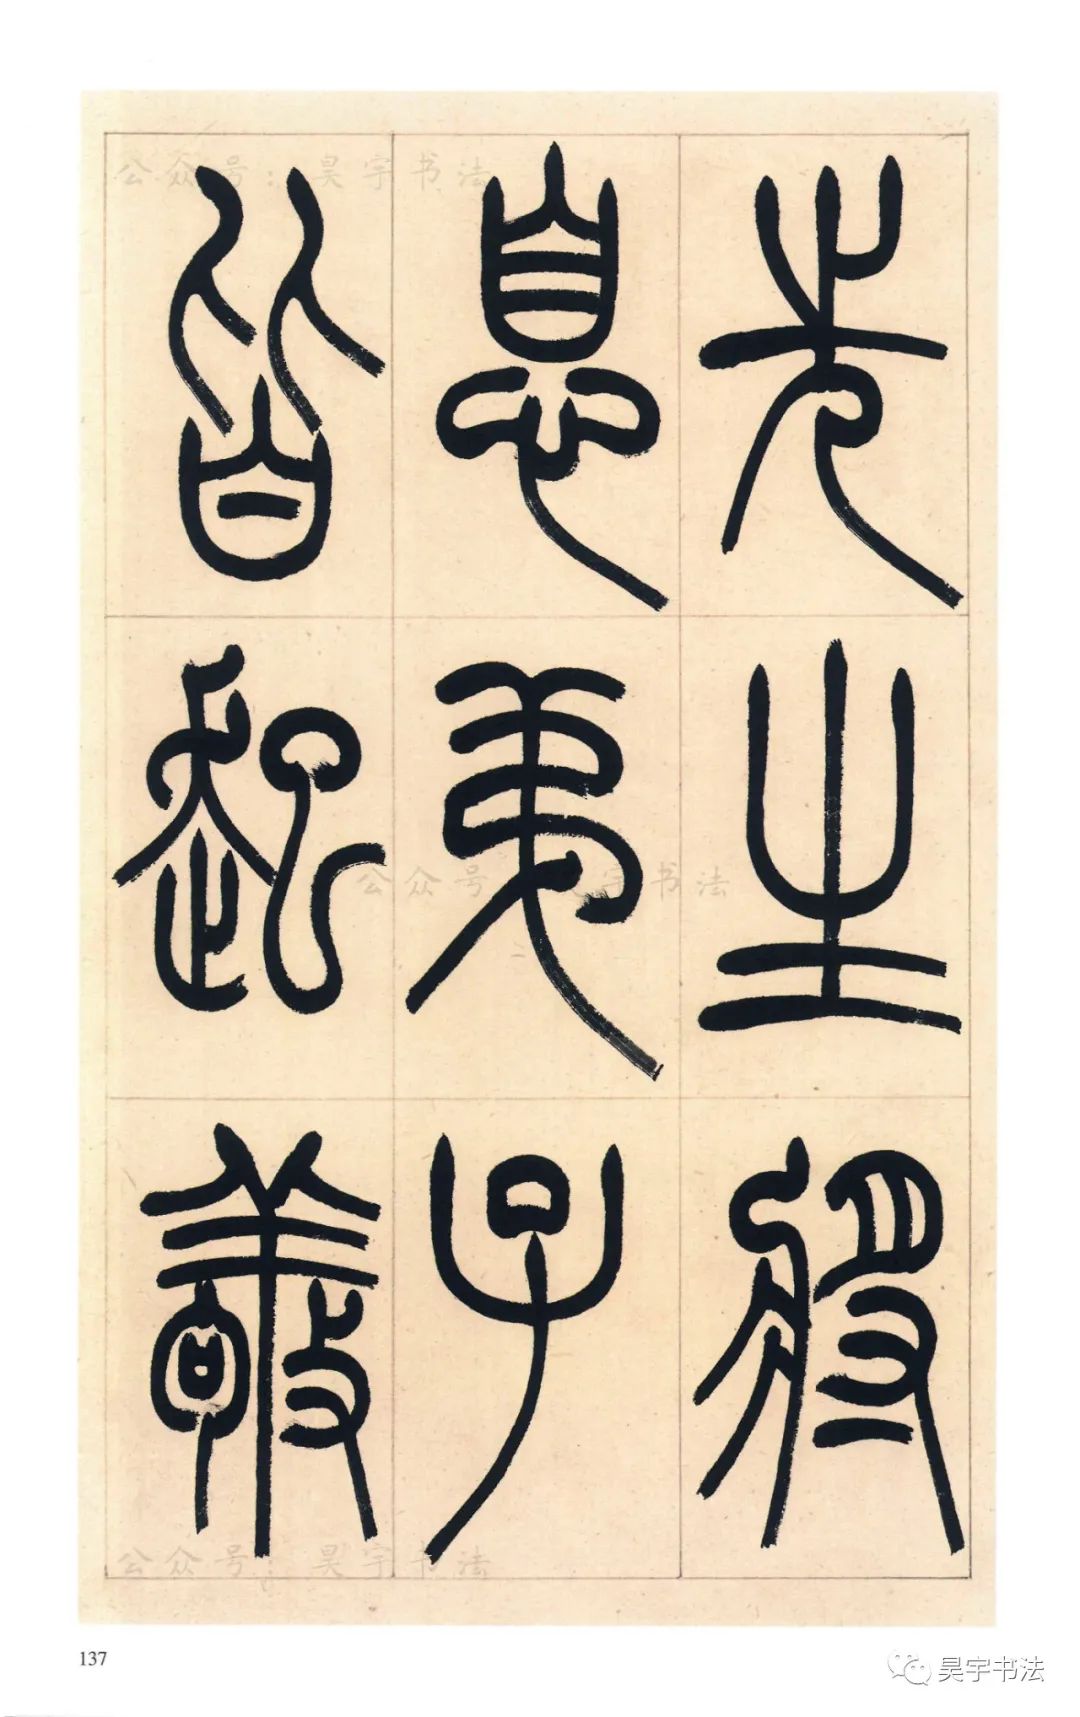 先生將
息弟子
皆起敬
公众号：昊宇书法
公众号：昊宇书法
公众号：昊宇书法
137
昊宇书法